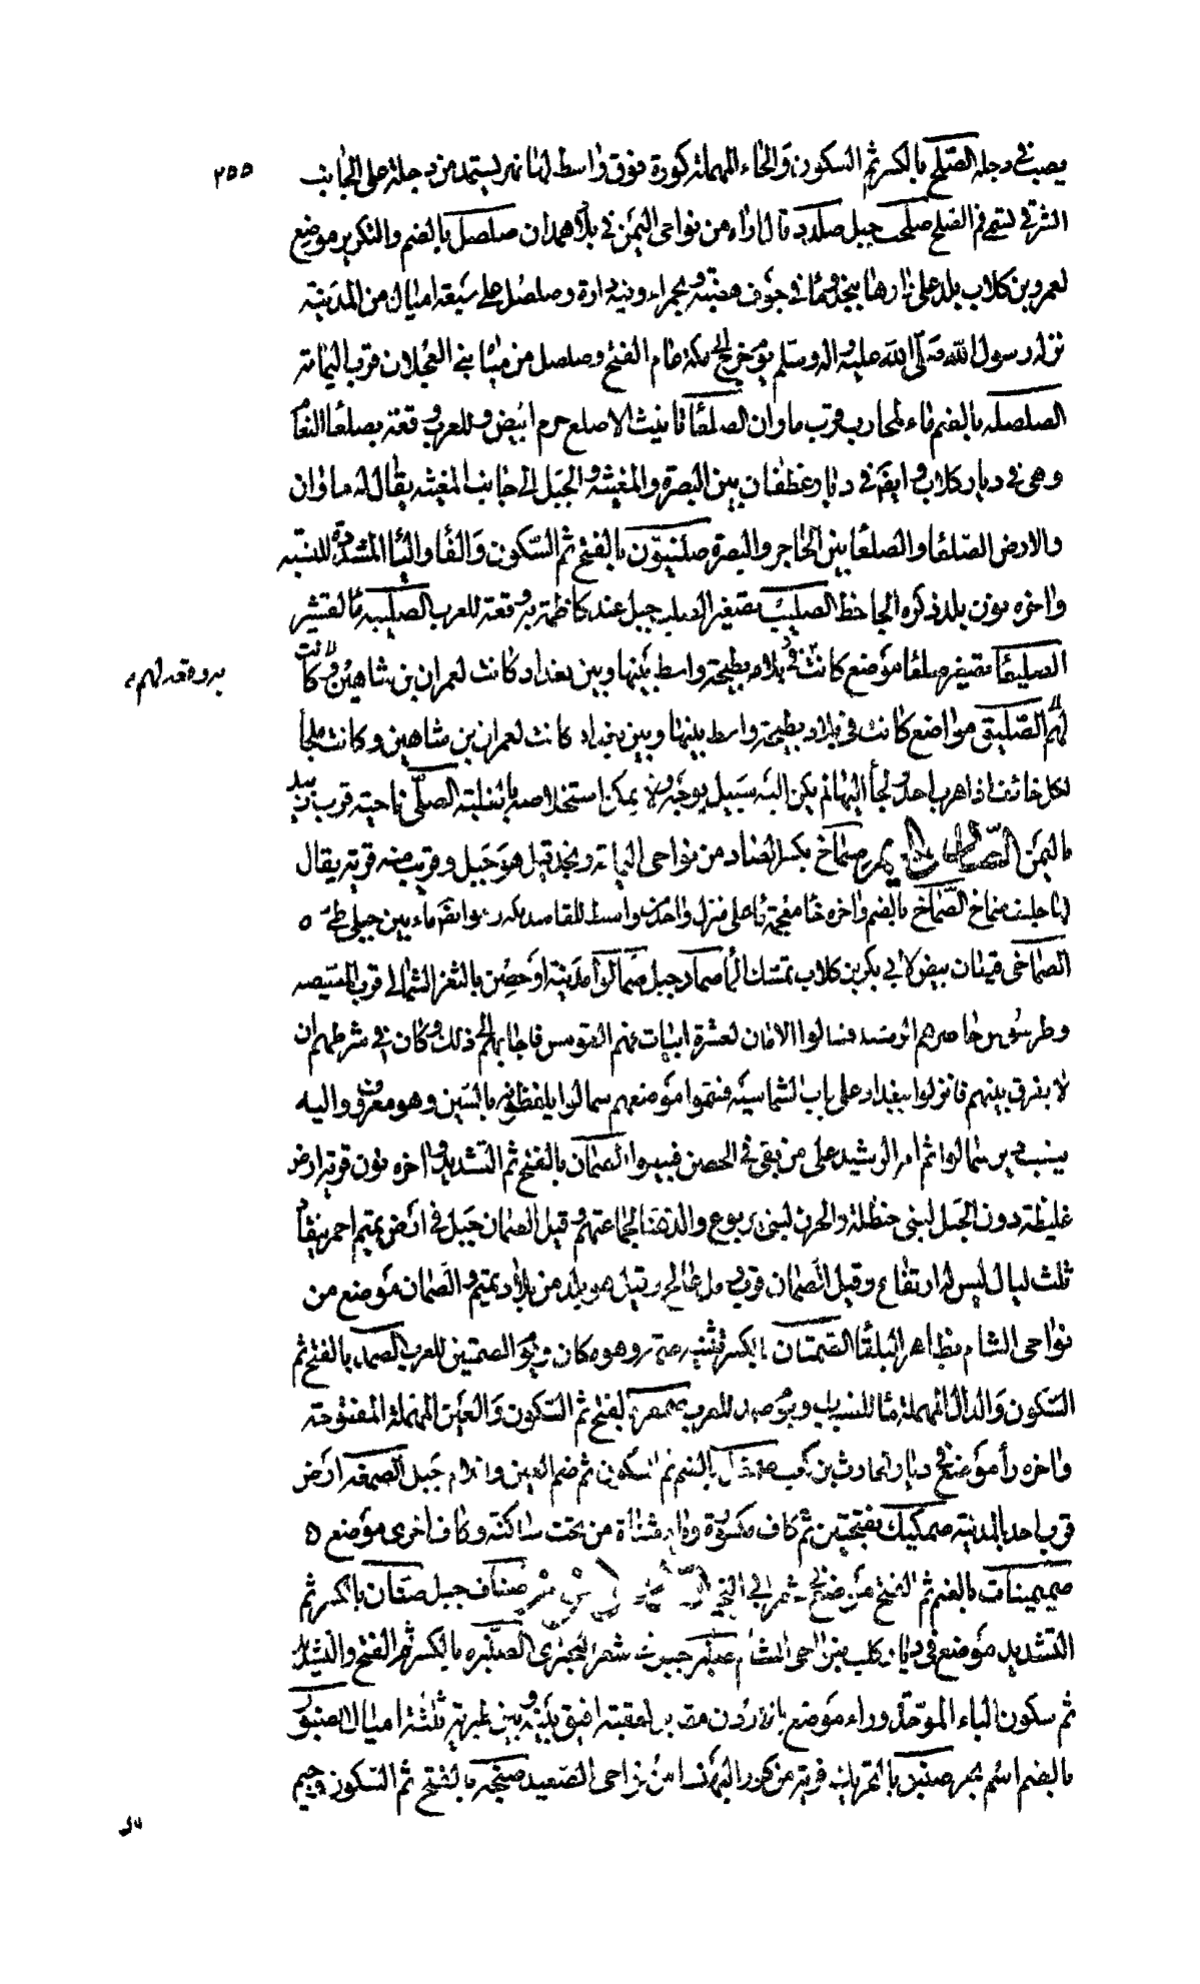 ٢٥٥
يصب في دجلة الصلح بالكسر ثم السكون والحاء المهملة كورة فوق واسط لها نهر يستمد من دجلة على الجانب
الشرقي لستمى فم الصلح صلحب جبل صلدد قال اراه من نواحى اليمن في بلاد همدان صلصل بالضم والتكرير موضع
لعمرو بن كلاب بلد على دارها بنجد وماء في جوف هضبة حمراء وفيه دارة وصلصل على سبعة اميال من المدينة
نزله رسول الله صلى الله عليه واله وسلم يوم خرج الى مكة عام الفتح وصلصل من مياه بني العجلان قرب اليمامة
الصلصلة بالضم ماء لمحارب قرب ماوان الصلعا تانيث الاصلع حرم ابيض وللعرب وقعة بصلعا النعام
وهى في ديار كلاب وايضا في ديار غطفان بين البصرة والمغيثة والجبل الى جانب المغيثة يقال له ماوان
والارض الصلفا والصلعا بين الحاجر والبصرة صلفيون بالفتح ثم السكون والفا واليا المشددة للنسبة
واخره نون بلد ذكره الجاحظ الصليب تصغير الصلب جبل عند كاظمة به وقعة للعرب الصليبة ما لقشير
الصليعا تصغير صلعا موضع كانت في بلاد بطيحة واسط بينها وبين بغداد كانت لعمران بن شاهين وكانت
به وقعة لهم
لهم الصليق مواضع كانت في بلاد بطيحة واسط بينها وبين بغداد كانت لعمران بن شاهين وكانت ملجأ
لكل خائف اذا هرب احد ولجأ اليها لم يكن اليه سبيل بوجه ولا يمكن استخلاصه بالغلبة الصلى ناحية قرب زبيد
باليمن صماخ بكسر الصاد من نواحى اليمامة ونجد قيل هو جبل وقريب منه قرية يقال
لها خليف صماخ الصماخ بالضم واخره خا معجمة ما على منزل واحد من واسط للقاصد مكة وايضا ماء بين جبلى طئ ٥
الصماخى قيعان بيض لابي بكر بن كلاب تمسك الما صماد جبل صمالوا مدينة او حصن بالثغر الشمالى قرب المصيصة
وطرسوس حاصرهم الرشيد فسالوا الامان لعشرة ابيات فيهم القومس فاجابهم الى ذلك وكان في شرطهم ان
لا يفرق بينهم فانزلوا ببغداد على باب الشماسية فسموا موضعهم سمالوا يلفظونه بالسين وهو معروف واليه
ينسب دير سمالوا ثم امر الرشيد على من بقى في الحصن فبيعوا الصمان بالفتح ثم التشديد واخره نون قرية ارض
غليظة دون الجبل لبنى حنظلة والحزن لبنى يربوع والدهنا لجماعتهم وقيل الصمان جبل في ارض تميم احمر ينقاد
ثلث ليال ليس له ارتفاع وقيل الصمان قرب رمل عالج وقيل هو بلد من بلاد تميم والصمان موضع من
نواحى الشام بظاهر البلقا الصمتان بالكسر تثنية صمة وهو مكان ويوم الصمتين للعرب الصمد بالفتح ثم
السكون والدال المهملة ما للضباب ويوم صمد للعرب صمعر بالفتح ثم السكون والعين المهملة المفتوحة
واخره رأ موضع في ديار الحارث بن كعب صمعل بالضم ثم السكون ثم ضم العين واللام جبل الصمغة ارض
قرب احد بالمدينة صمكيك بفتحتين ثم كاف مكسورة وياء مثناة من تحت ساكنة وكاف اخرى موضع ٥
صميمينات بالضم ثم الفتح صناف جبل صنان بالكسر ثم
التشديد موضع في ديار كلب من نواحى الشام في شعر البحترى الصنبره بالكسر ثم الفتح والتشديد
ثم سكون الباء الموحدة وراء موضع بالاردن مقابل لعقبة افيق بينه وبين طبرية ثلثة اميال الصنبوق
بالضم اسم بحر صنبو بالتحريك قرية من كور البهنسا من نواحى الصعيد صنجة بالفتح ثم السكون وجيم